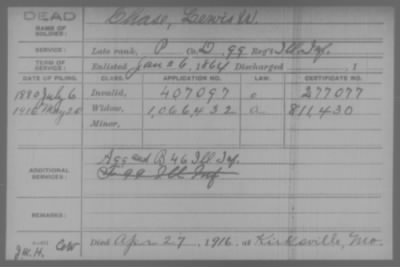 DEAD
NAME OF SOLDIER:
Chase, Lewis W.
SERVICE:
Late rank, P Co. D, 99 Reg't Ill. Inf.
TERM OF SERVICE:
Enlisted Jan 26, 1864 Discharged , 1
DATE OF FILING. CLASS. APPLICATION NO. LAW. CERTIFICATE NO.
1880 July 6 Invalid, 407097 277077
1916 May 20 Widow, 1,066,432 a 811,430
Minor,
ADDITIONAL SERVICES:
B 46 Ill. Inf.
Ill Inf
REMARKS:
J.W.H.
Died Apr 27, 1916, at Kirksville, Mo.